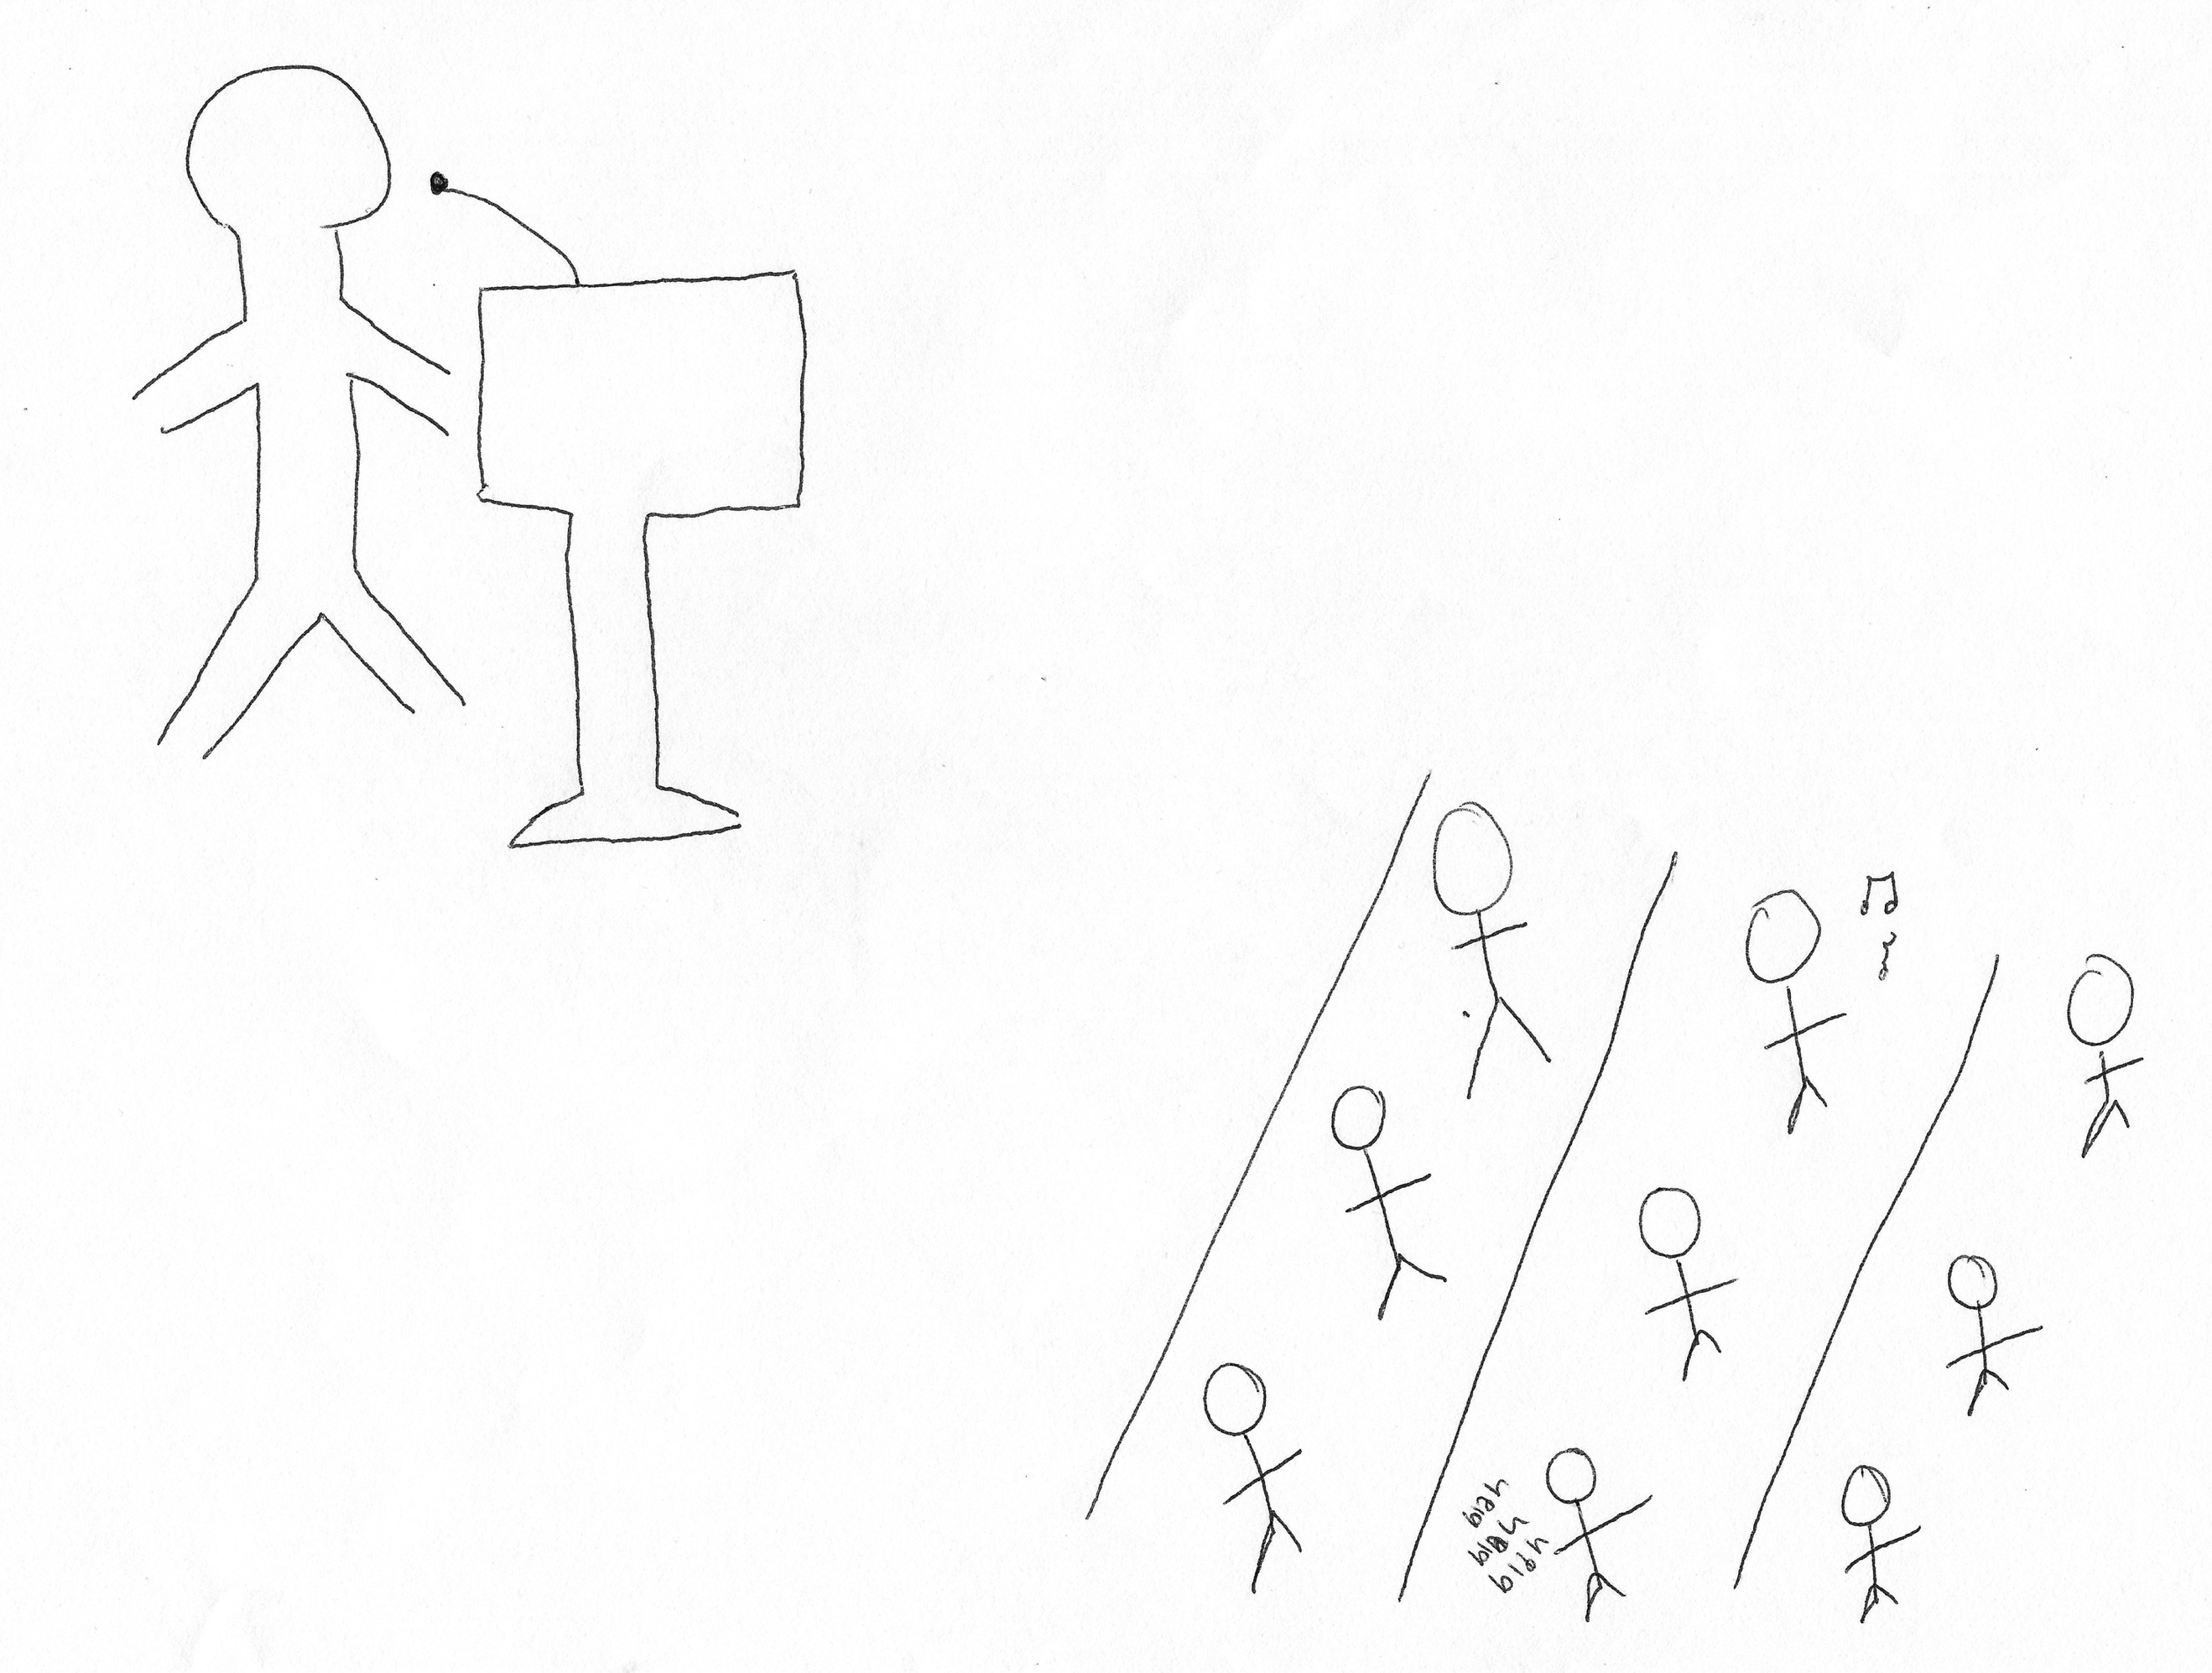 blah
blah
blah